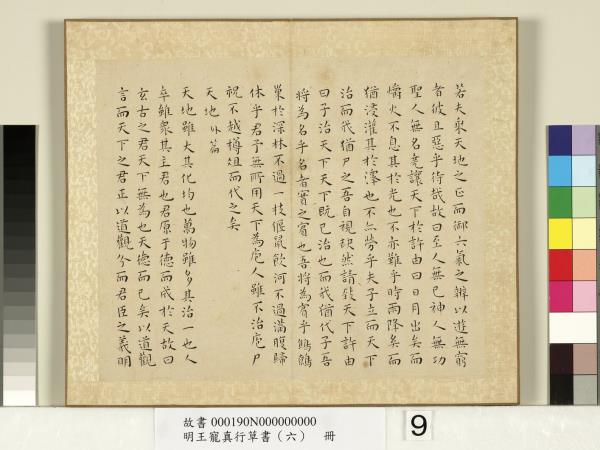 若夫乗天地之正而御六氣之辨以遊無窮
者彼且惡乎待哉故曰至人無己神人無功
聖人無名堯讓天下於許由曰日月出矣而
爝火不息其於光也不亦難乎時雨降矣而
猶浸灌其於澤也不亦勞乎夫子立而天下
治而我猶尸之吾自視缺然請致天下許由
曰子治天下天下既已治也而我猶代子吾
將為名乎名者實之賓也吾將為賓乎鷦鷯
巢於深林不過一枝偃鼠飲河不過滿腹歸
休乎君予無所用天下為庖人雖不治庖尸
祝不越樽俎而代之矣
天地外篇
天地雖大其化均也萬物雖多其治一也人
卒雖衆其主君也君原于德而成於天故曰
玄古之君天下無為也天德而已矣以道觀
言而天下之君正以道觀分而君臣之義明
故書 000190N000000000
明王寵真行草書（六） 冊
9